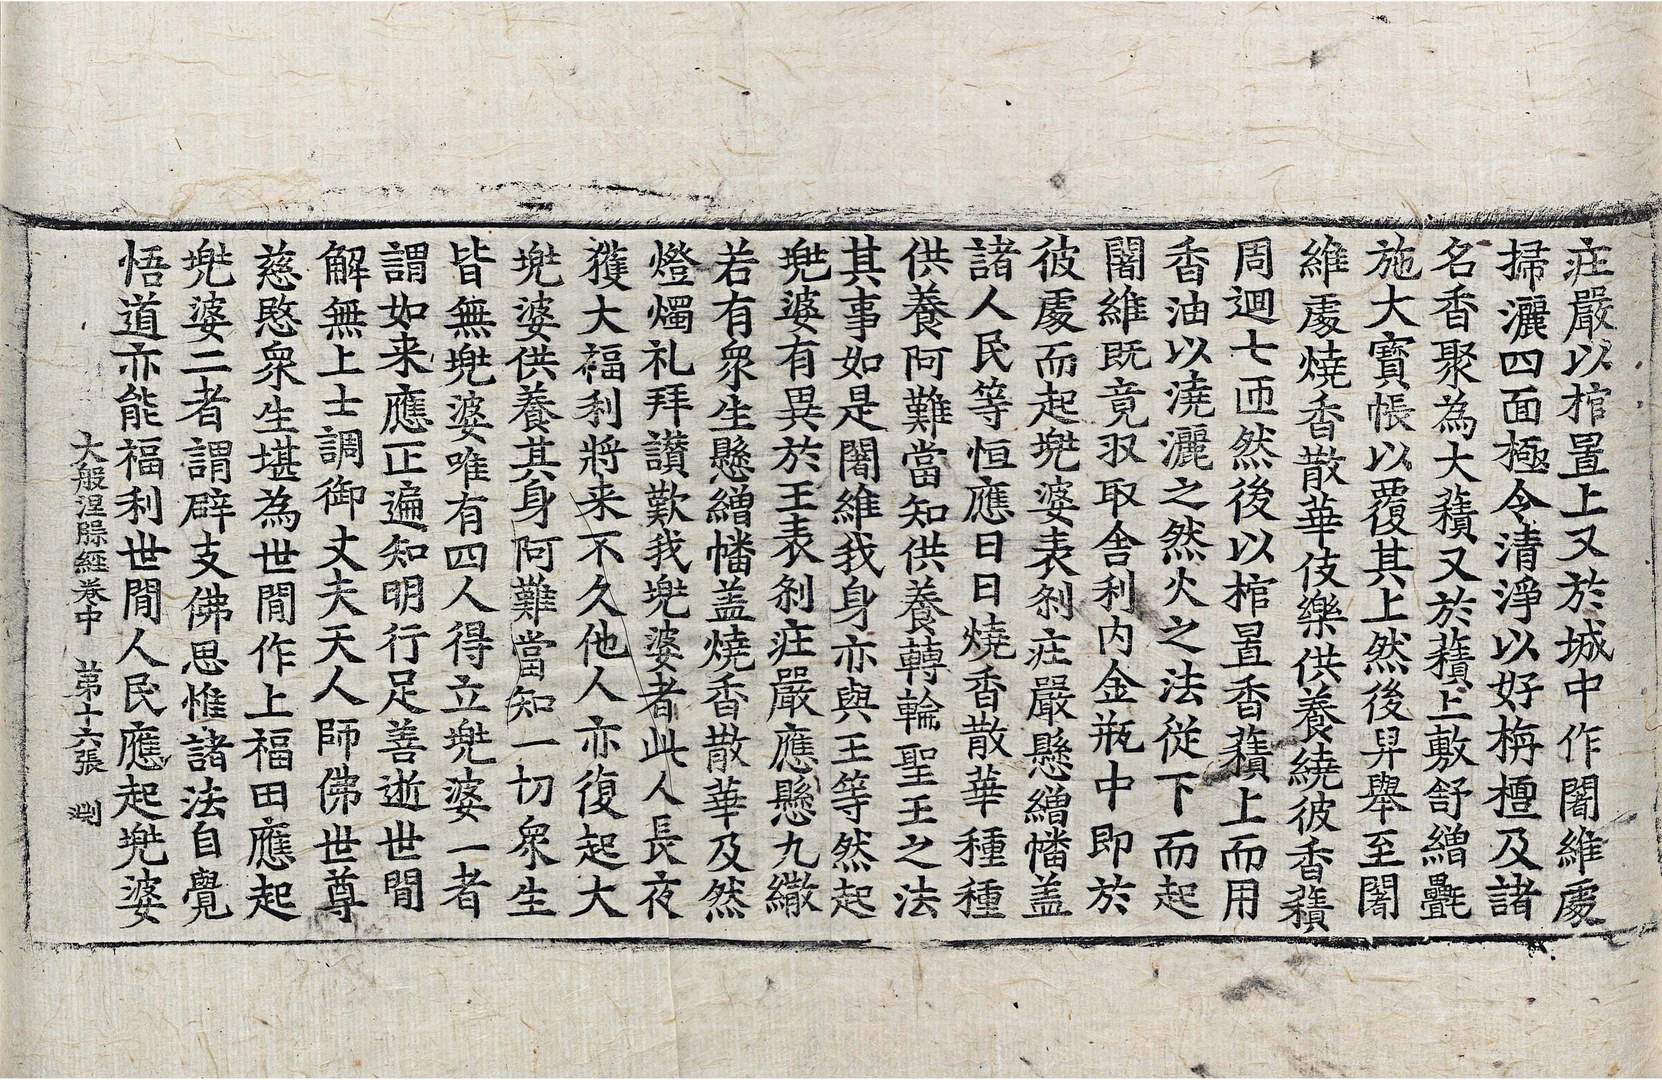 庄嚴以棺置上又於城中作闍維處
掃灑四面極令清淨以好栴檀及諸
名香聚為大𧂐又於𧂐上敷舒繒㲲
施大寶帳以覆其上然後舁舉至闍
維處燒香散華伎樂供養繞彼香𧂐
周迴七匝然後以棺置香𧂐上而用
香油以澆灑之然火之法從下而起
闍維既竟収取舍利内金瓶中即於
彼處而起兜婆表剎庄嚴懸繒幡盖
諸人民等恒應日日燒香散華種種
供養阿難當知供養轉輪聖王之法
其事如是闍維我身亦與王等然起
兜婆有異於王表剎庄嚴應懸九繖
若有衆生懸繒幡盖燒香散華及然
燈燭礼拜讃歎我兜婆者此人長夜
獲大福利將来不久他人亦復起大
兜婆供養其身阿難當知一切衆生
皆無兜婆唯有四人得立兜婆一者
謂如来應正遍知明行足善逝世閒
解無上士調御丈夫天人師佛世尊
慈愍衆生堪為世閒作上福田應起
兜婆二者謂辟支佛思惟諸法自覺
悟道亦能福利世閒人民應起兜婆
大般涅槃經卷中 第十六張